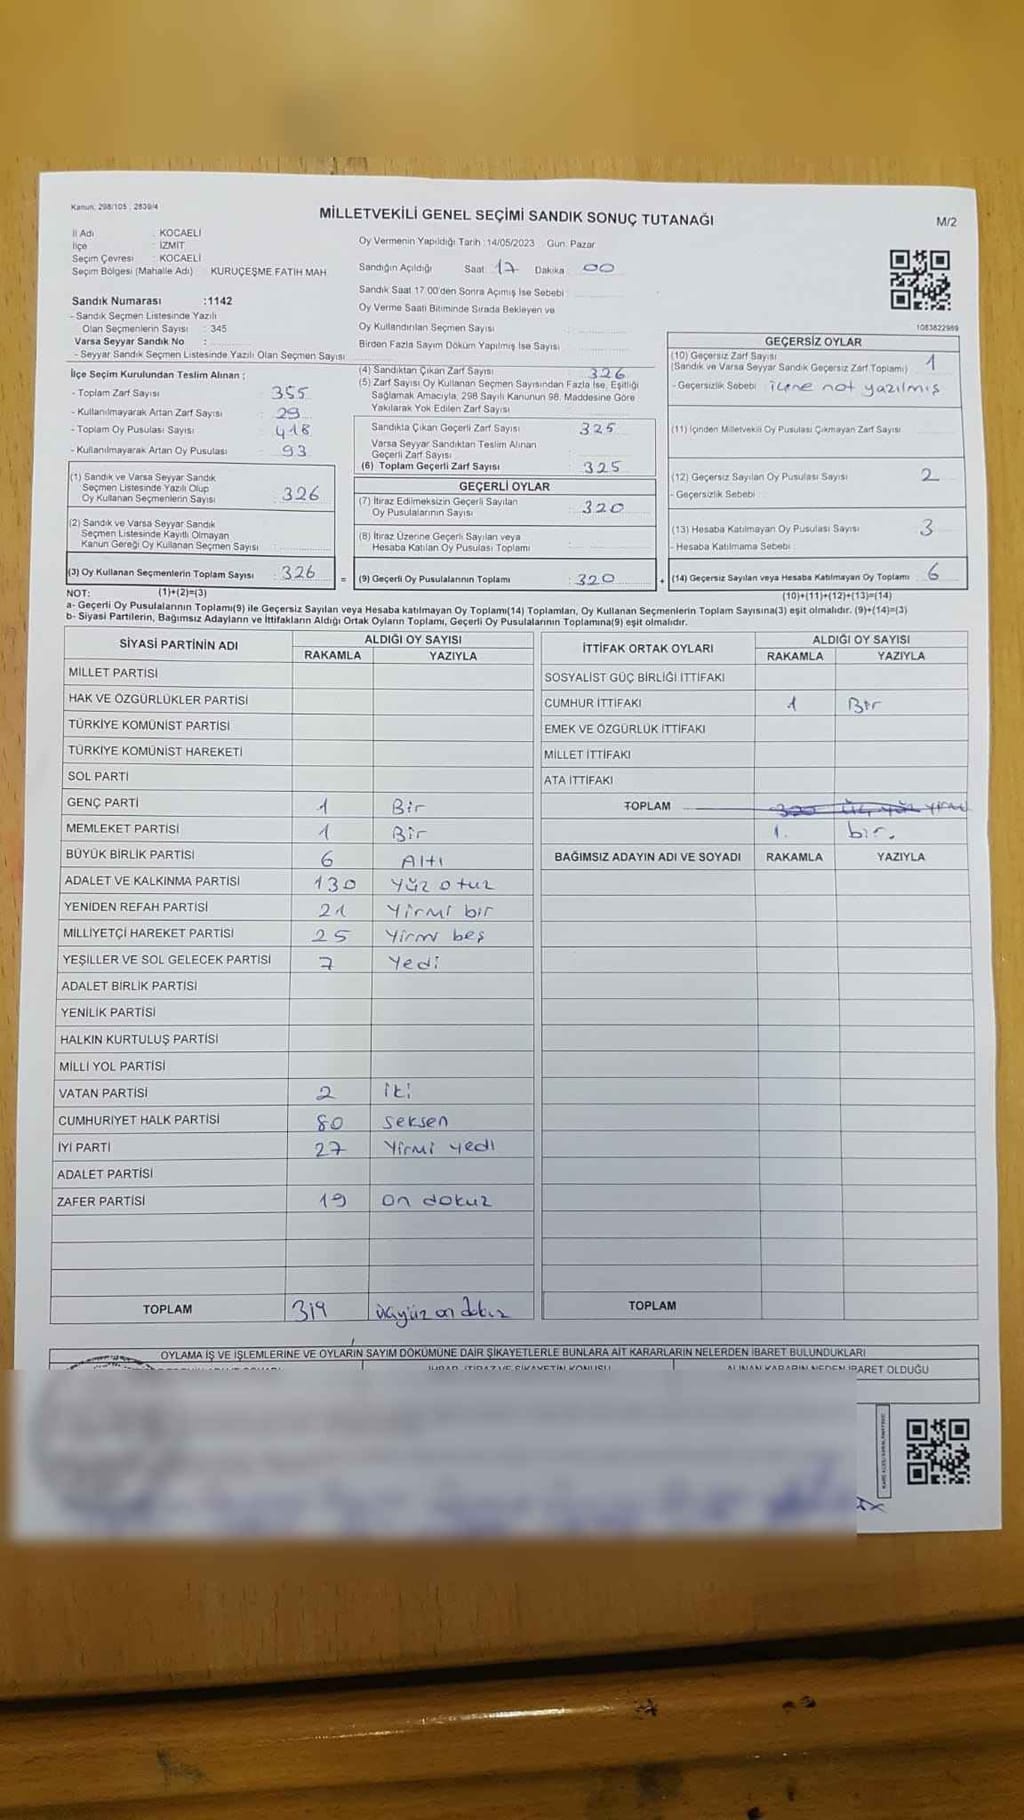 Kanun: 298/105 , 2839/4
MİLLETVEKİLİ GENEL SEÇİMİ SANDIK SONUÇ TUTANAĞI
M/2
İl Adı : KOCAELİ
İlçe : İZMİT
Seçim Çevresi : KOCAELİ
Seçim Bölgesi (Mahalle Adı) : KURUÇEŞME FATİH MAH
Sandık Numarası :1142
- Sandık Seçmen Listesinde Yazılı
Olan Seçmenlerin Sayısı : 345
Varsa Seyyar Sandık No :
- Seyyar Sandık Seçmen Listesinde Yazılı Olan Seçmen Sayısı
Oy Vermenin Yapıldığı Tarih :14/05/2023 Gün: Pazar
Sandığın Açıldığı Saat 17 Dakika 00
Sandık Saat 17.00'den Sonra Açılmış İse Sebebi
Oy Verme Saati Bitiminde Sırada Bekleyen ve
Oy Kullandırılan Seçmen Sayısı
Birden Fazla Sayım Döküm Yapılmış İse Sayısı
1083822989
İlçe Seçim Kurulundan Teslim Alınan ;
- Toplam Zarf Sayısı : 355
- Kullanılmayarak Artan Zarf Sayısı : 29
- Toplam Oy Pusulası Sayısı : 418
- Kullanılmayarak Artan Oy Pusulası : 93
(1) Sandık ve Varsa Seyyar Sandık
Seçmen Listesinde Yazılı Olup
Oy Kullanan Seçmenlerin Sayısı : 326
(2) Sandık ve Varsa Seyyar Sandık
Seçmen Listesinde Kayıtlı Olmayan
Kanun Gereği Oy Kullanan Seçmen Sayısı :
(3) Oy Kullanan Seçmenlerin Toplam Sayısı : 326
(1)+(2)=(3)
(4) Sandıktan Çıkan Zarf Sayısı 326
(5) Zarf Sayısı Oy Kullanan Seçmen Sayısından Fazla İse, Eşitliği
Sağlamak Amacıyla, 298 Sayılı Kanunun 98. Maddesine Göre
Yakılarak Yok Edilen Zarf Sayısı
Sandıkta Çıkan Geçerli Zarf Sayısı : 325
Varsa Seyyar Sandıktan Teslim Alınan
Geçerli Zarf Sayısı
(6) Toplam Geçerli Zarf Sayısı : 325
GEÇERLİ OYLAR
(7) İtiraz Edilmeksizin Geçerli Sayılan
Oy Pusulalarının Sayısı : 320
(8) İtiraz Üzerine Geçerli Sayılan veya
Hesaba Katılan Oy Pusulası Toplamı
= (9) Geçerli Oy Pusulalarının Toplamı : 320
GEÇERSİZ OYLAR
(10) Geçersiz Zarf Sayısı
(Sandık ve Varsa Seyyar Sandık Geçersiz Zarf Toplamı) : 1
- Geçersizlik Sebebi : içine not yazılmış
(11) İçinden Milletvekili Oy Pusulası Çıkmayan Zarf Sayısı
(12) Geçersiz Sayılan Oy Pusulası Sayısı : 2
- Geçersizlik Sebebi :
(13) Hesaba Katılmayan Oy Pusulası Sayısı : 3
- Hesaba Katılmama Sebebi :
+ (14) Geçersiz Sayılan veya Hesaba Katılmayan Oy Toplamı : 6
(10)+(11)+(12)+(13)=(14)
NOT:
a- Geçerli Oy Pusulalarının Toplamı(9) ile Geçersiz Sayılan veya Hesaba katılmayan Oy Toplamı(14) Toplamları, Oy Kullanan Seçmenlerin Toplam Sayısına(3) eşit olmalıdır. (9)+(14)=(3)
b- Siyasi Partilerin, Bağımsız Adayların ve İttifakların Aldığı Ortak Oyların Toplamı, Geçerli Oy Pusulalarının Toplamına(9) eşit olmalıdır.
SİYASİ PARTİNİN ADI ALDIĞI OY SAYISI
RAKAMLA YAZIYLA
MİLLET PARTİSİ
HAK VE ÖZGÜRLÜKLER PARTİSİ
TÜRKİYE KOMÜNİST PARTİSİ
TÜRKİYE KOMÜNİST HAREKETİ
SOL PARTİ
GENÇ PARTİ 1 Bir
MEMLEKET PARTİSİ 1 Bir
BÜYÜK BİRLİK PARTİSİ 6 Altı
ADALET VE KALKINMA PARTİSİ 130 Yüz otuz
YENİDEN REFAH PARTİSİ 21 Yirmi bir
MİLLİYETÇİ HAREKET PARTİSİ 25 Yirmi beş
YEŞİLLER VE SOL GELECEK PARTİSİ 7 Yedi
ADALET BİRLİK PARTİSİ
YENİLİK PARTİSİ
HALKIN KURTULUŞ PARTİSİ
MİLLİ YOL PARTİSİ
VATAN PARTİSİ 2 iki
CUMHURİYET HALK PARTİSİ 80 seksen
İYİ PARTİ 27 Yirmi yedi
ADALET PARTİSİ
ZAFER PARTİSİ 19 on dokuz
TOPLAM 319 üçyüz on dokuz
İTTİFAK ORTAK OYLARI ALDIĞI OY SAYISI
RAKAMLA YAZIYLA
SOSYALİST GÜÇ BİRLİĞİ İTTİFAKI
CUMHUR İTTİFAKI 1 Bir
EMEK VE ÖZGÜRLÜK İTTİFAKI
MİLLET İTTİFAKI
ATA İTTİFAKI
TOPLAM 320 üç yüz yirmi
1. bir.
BAĞIMSIZ ADAYIN ADI VE SOYADI RAKAMLA YAZIYLA
TOPLAM
OYLAMA İŞ VE İŞLEMLERİNE VE OYLARIN SAYIM DÖKÜMÜNE DAİR ŞİKAYETLERLE BUNLARA AİT KARARLARIN NELERDEN İBARET BULUNDUKLARI
İHBAR, İTİRAZ VE ŞİKAYETİN KONUSU
ALINAN KARARIN NEDEN İBARET OLDUĞU